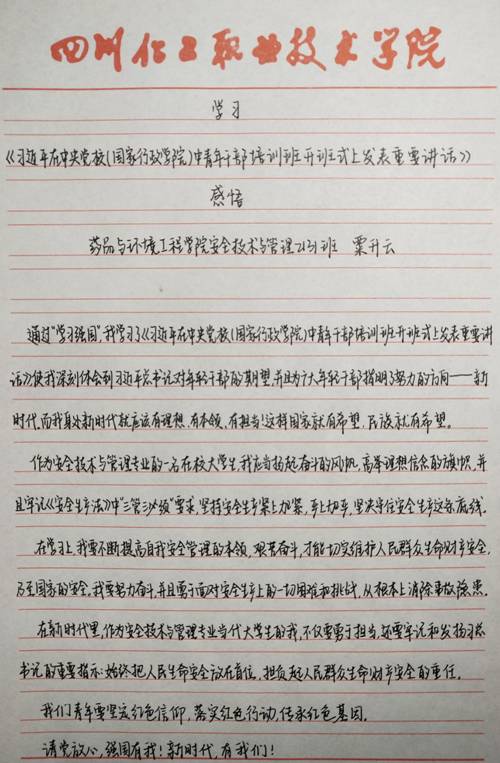 四川化工职业技术学院
学习
《习近平在中央党校(国家行政学院)中青年干部培训班开班式上发表重要讲话》
感悟
药品与环境工程学院安全技术与管理2131班 粟升云
通过"学习强国",我学习了《习近平在中央党校(国家行政学院)中青年干部培训班开班式上发表重要讲
话》使我深刻体会到习近平总书记对年轻干部的期望,并且为广大年轻干部指明了努力的方向——新
时代,而我身处新时代就应该有理想、有本领、有担当!这样国家就有希望,民族就有希望。
作为安全技术与管理专业的一名在校大学生,我应当扬起奋斗的风帆,高举理想信念的旗帜,并
且牢记《安全生产法》中"三管三必须"要求,坚持安全生产紧上加紧,手上加手,坚决守住安全生产这条底线。
在学习上,我要不断提高自我安全管理的本领,艰苦奋斗,才能切实维护人民群众生命财产安全,
乃至国家的安全,我要努力奋斗,并且勇于面对安全生产上的一切困难和挑战,从根本上消除事故隐患。
在新时代里,作为安全技术与管理专业当代大学生的我,不仅要勇于担当,还要牢记和发扬习总
书记的重要指示:始终把人民生命安全放在首位,担负起人民群众生命财产安全的重任。
我们青年要坚定红色信仰,落实红色行动,传承红色基因。
请党放心,强国有我!新时代,有我们!